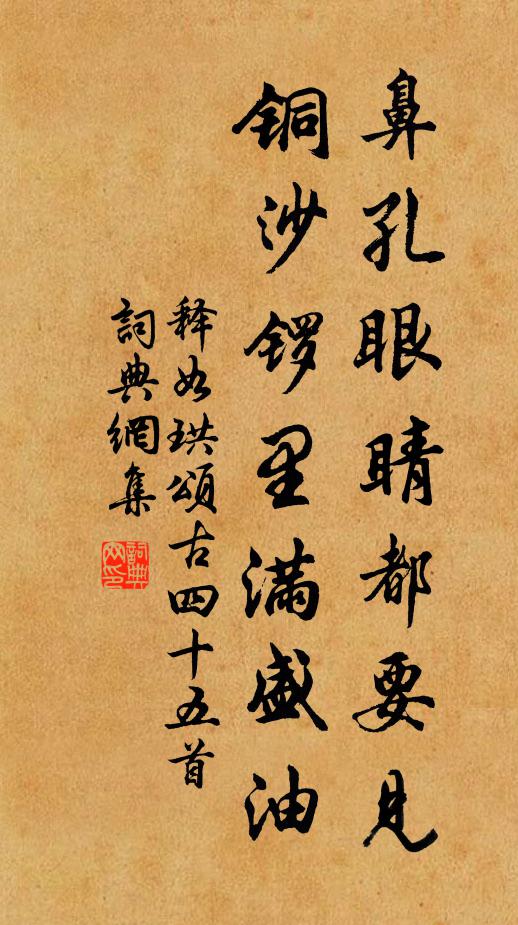 鼻孔眼睛都要見
铜沙锣里满盛油
释如珙頌古四十五首
詞典網集
詞典网印